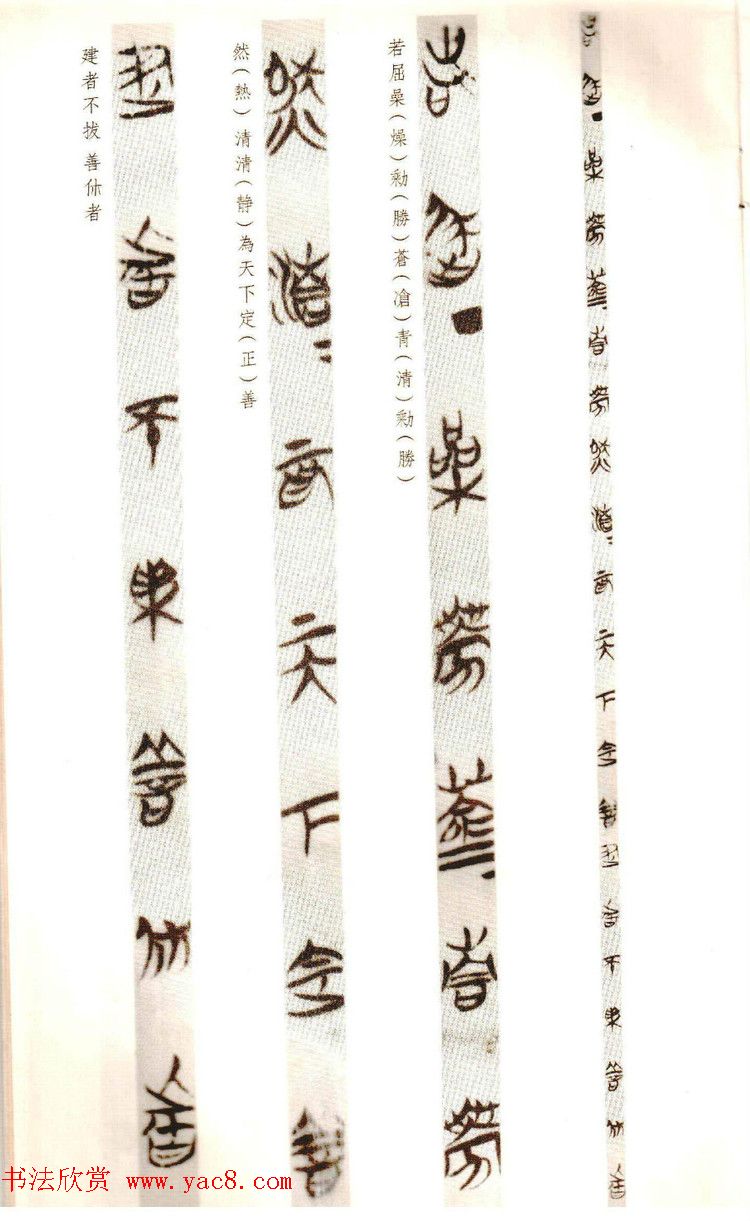 若屈喿(燥)勑(勝)蒼(凔)青(清)勑(勝)
然(熱)清清(静)為天下定(正)善
建者不拔 善休者
书法欣赏 www.yac8.com